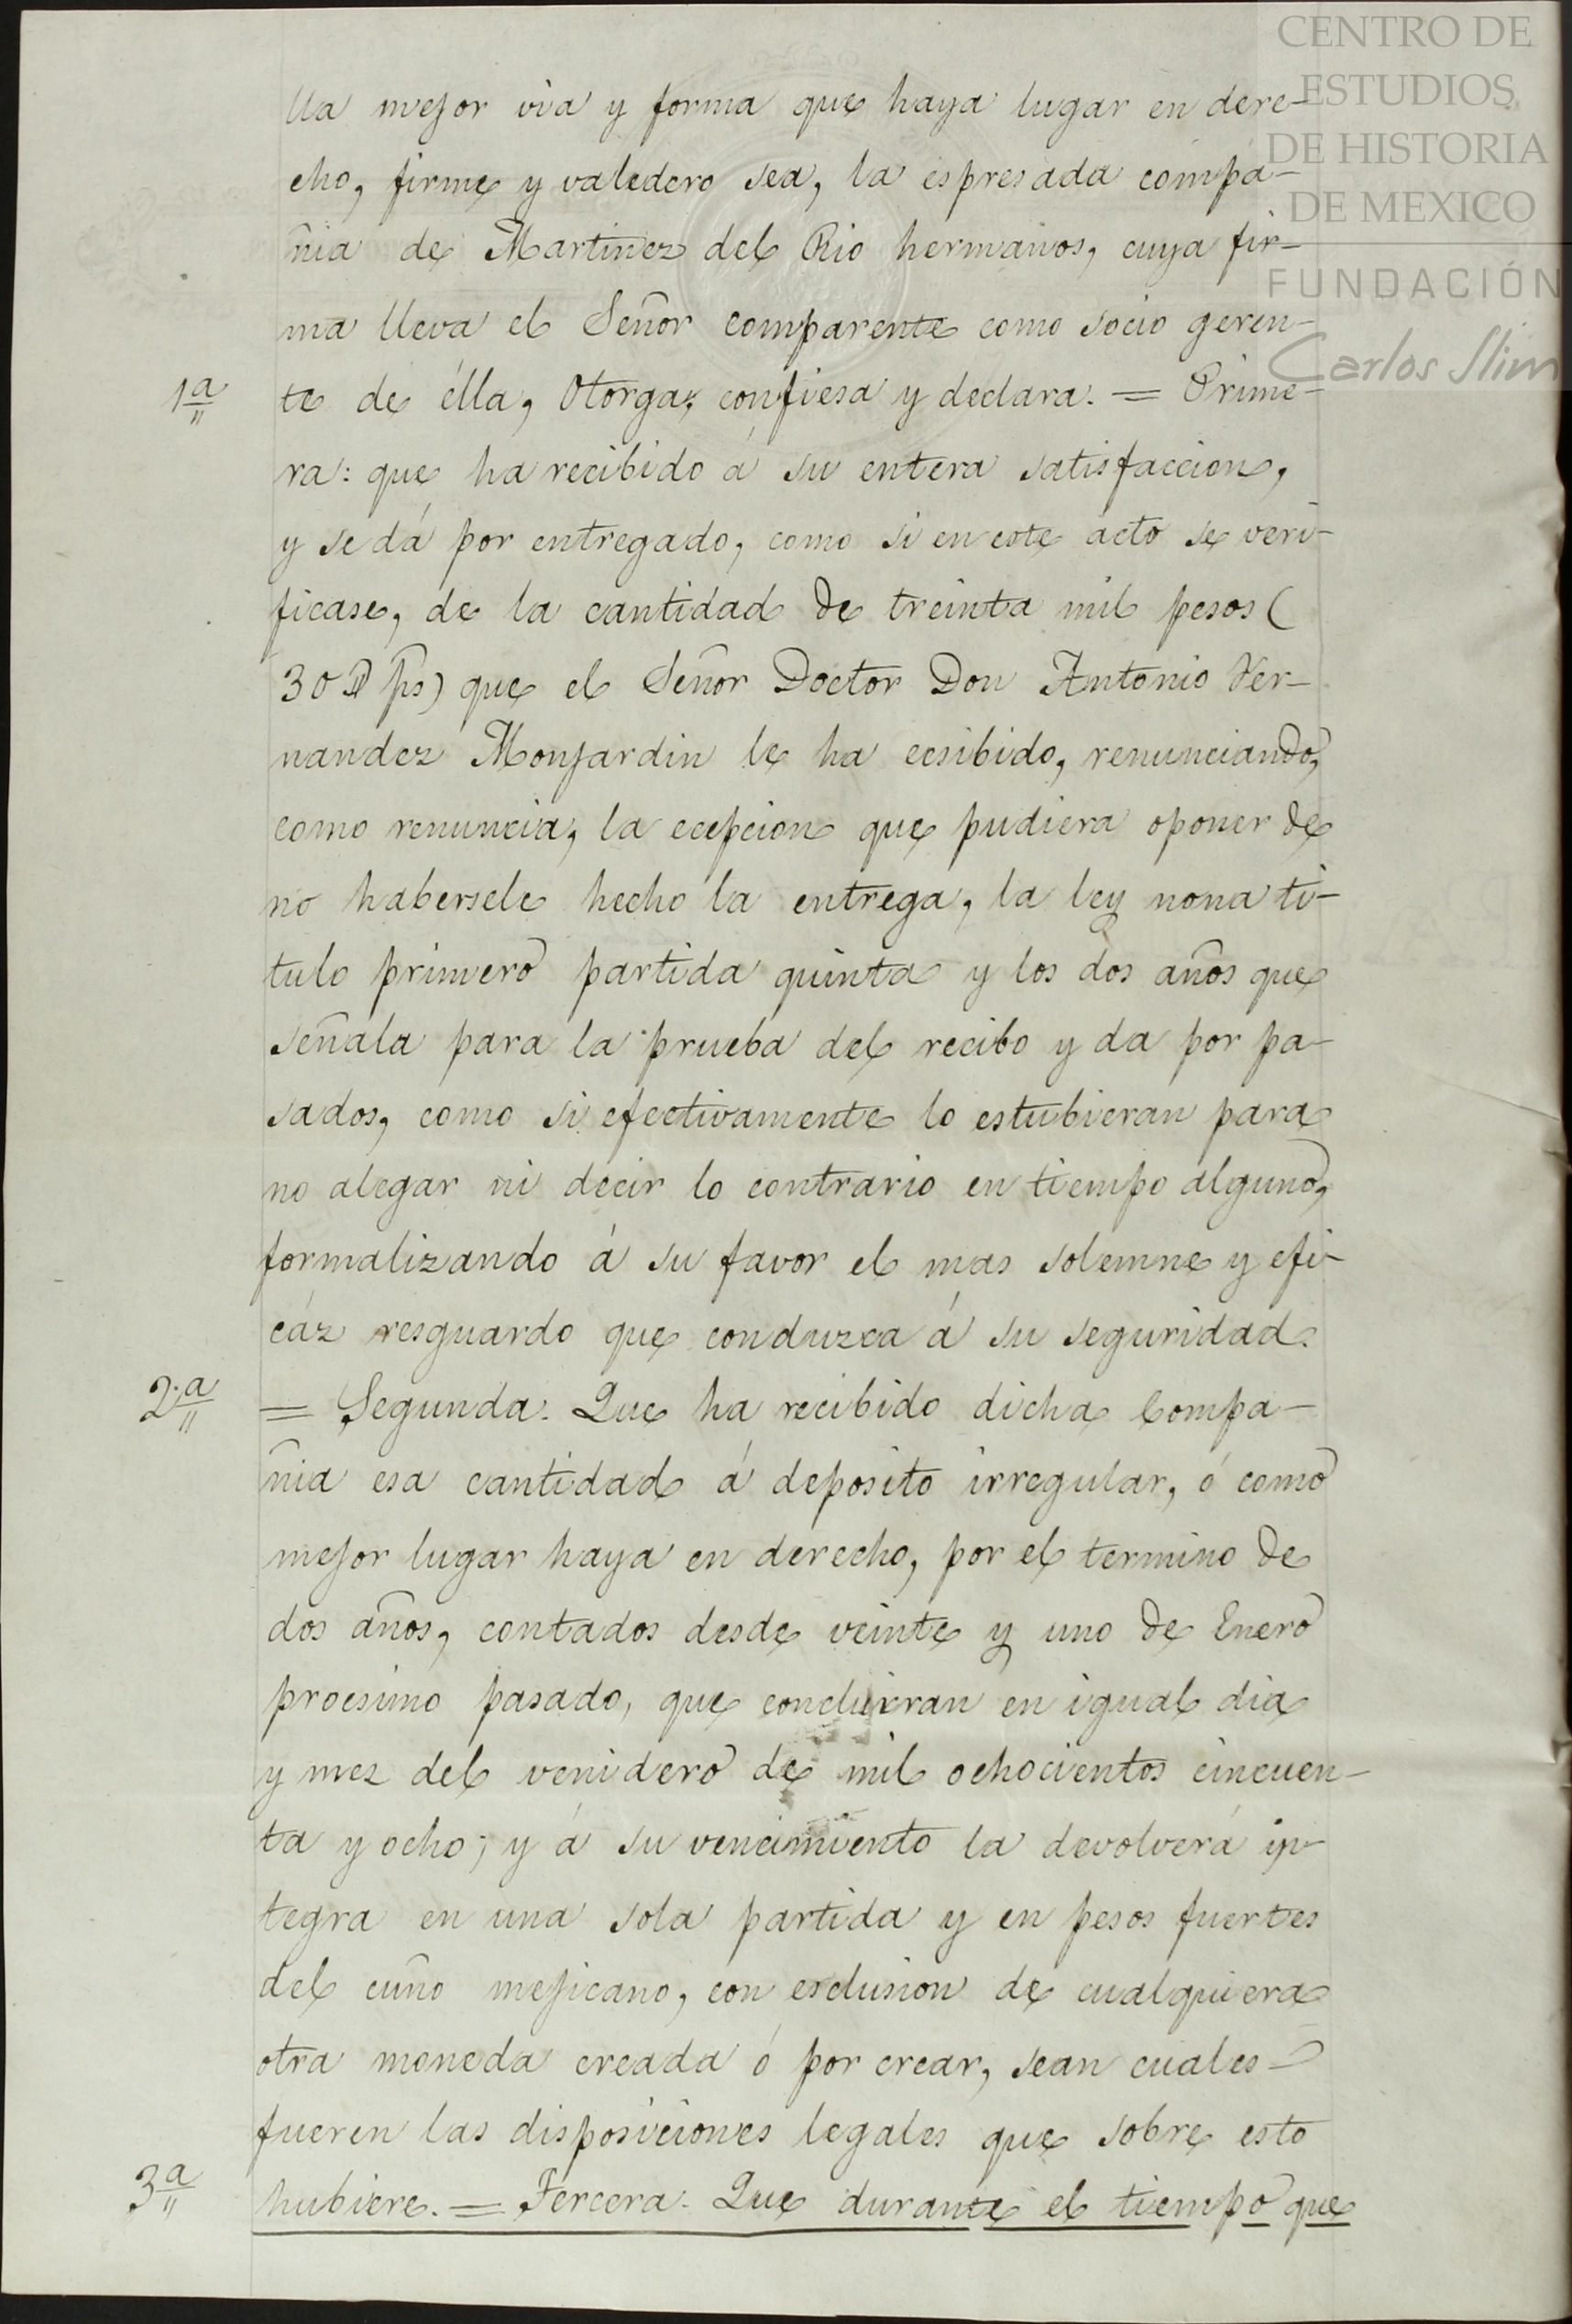 CENTRO DE
ESTUDIOS
DE HISTORIA
DE MEXICO
FUNDACIÓN
Carlos Slim
lla mejor via y forma que haya lugar en dere-
cho, firme y valedero sea, la espresada compa-
ñia de Martinez del Rio hermanos, cuya fir-
ma lleva el Señor comparente como socio geren-
1ª te de élla, Otorga, confiesa y declara. = Prime-
ra: que ha recibido á su entera satisfaccion,
y se dá por entregado, como si en este acto se veri-
ficase, de la cantidad de treinta mil pesos (
30 ps) que el Señor Doctor Don Antonio Fer-
nandez Monjardin le ha ecsibido, renunciando,
como renuncia, la ecepcion que pudiera oponer de
no habersele hecho la entrega, la ley nona ti-
tulo primero partida quinta y los dos años que
señala para la prueba del recibo y da por pa-
sados, como si efectivamente lo estubieran para
no alegar ni decir lo contrario en tiempo alguno,
formalizando á su favor el mas solemne y efi-
cáz resguardo que conduzca á su seguridad.
2.ª = Segunda. Que ha recibido dicha Compa-
ñia esa cantidad á deposito irregular, ó como
mejor lugar haya en derecho, por el termino de
dos años, contados desde veinte y uno de Enero
procsimo pasado, que concluiran en igual dia
y mez del venidero de mil ochocientos cincuen-
ta y ocho; y á su vencimiento la devolverá in-
tegra en una sola partida y en pesos fuertes
del cuño mejicano, con esclusion de cualquiera
otra moneda creada ó por crear, sean cuales-
fueren las disposiciones legales que sobre esto
3ª hubiere. = Tercera. Que durante el tiempo que